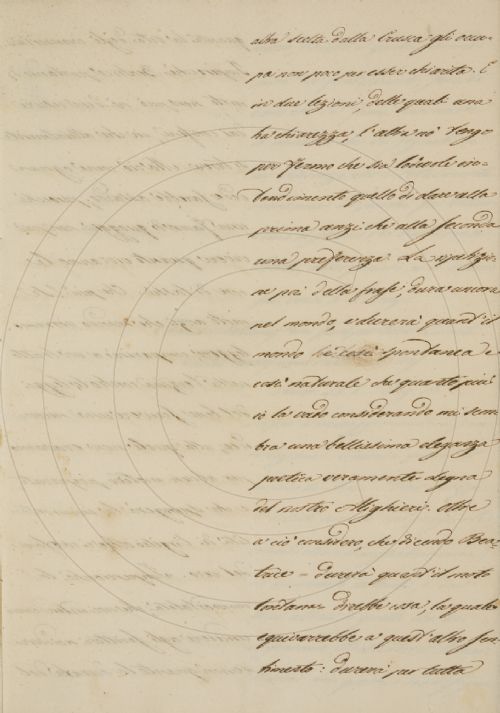 altra scelta dalla Crusca gli occu-
pa non poco per esser chiarita. E
in due lezioni, delle quali una
ha chiarezza, l'altra nò tengo
per fermo che sia lodevole in-
tendimento quello di dare alla
prima anzi che alla seconda
una preferenza. La ripetizio-
ne poi della frase, dura ancora
nel mondo, e durerà quant' il
mondo è così spontanea e
così naturale che quanto più
io la vado considerando mi sem-
bra una bellissima eleganza
poetica veramente degna
del nostro Alighieri. Oltre
a ciò considero, che dicendo Bea-
trice = durerà quant' il moto
lontana = direbbe cosa, la quale
equivarrebbe a quest' altro sen-
timento: durerà per tutta